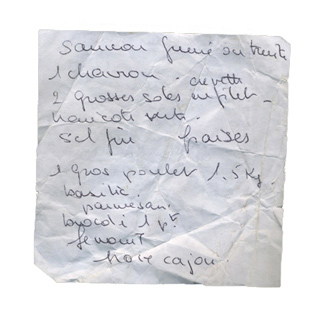 Saumon fumé ou truite
1 chevron. crevette
2 grosses soles en filet -
haricots verts.
sel fin fraises
1 gros poulet 1.5 Kg.
basilic.
parmesan.
brocoli 1 pt
fenouil
noix cajou.